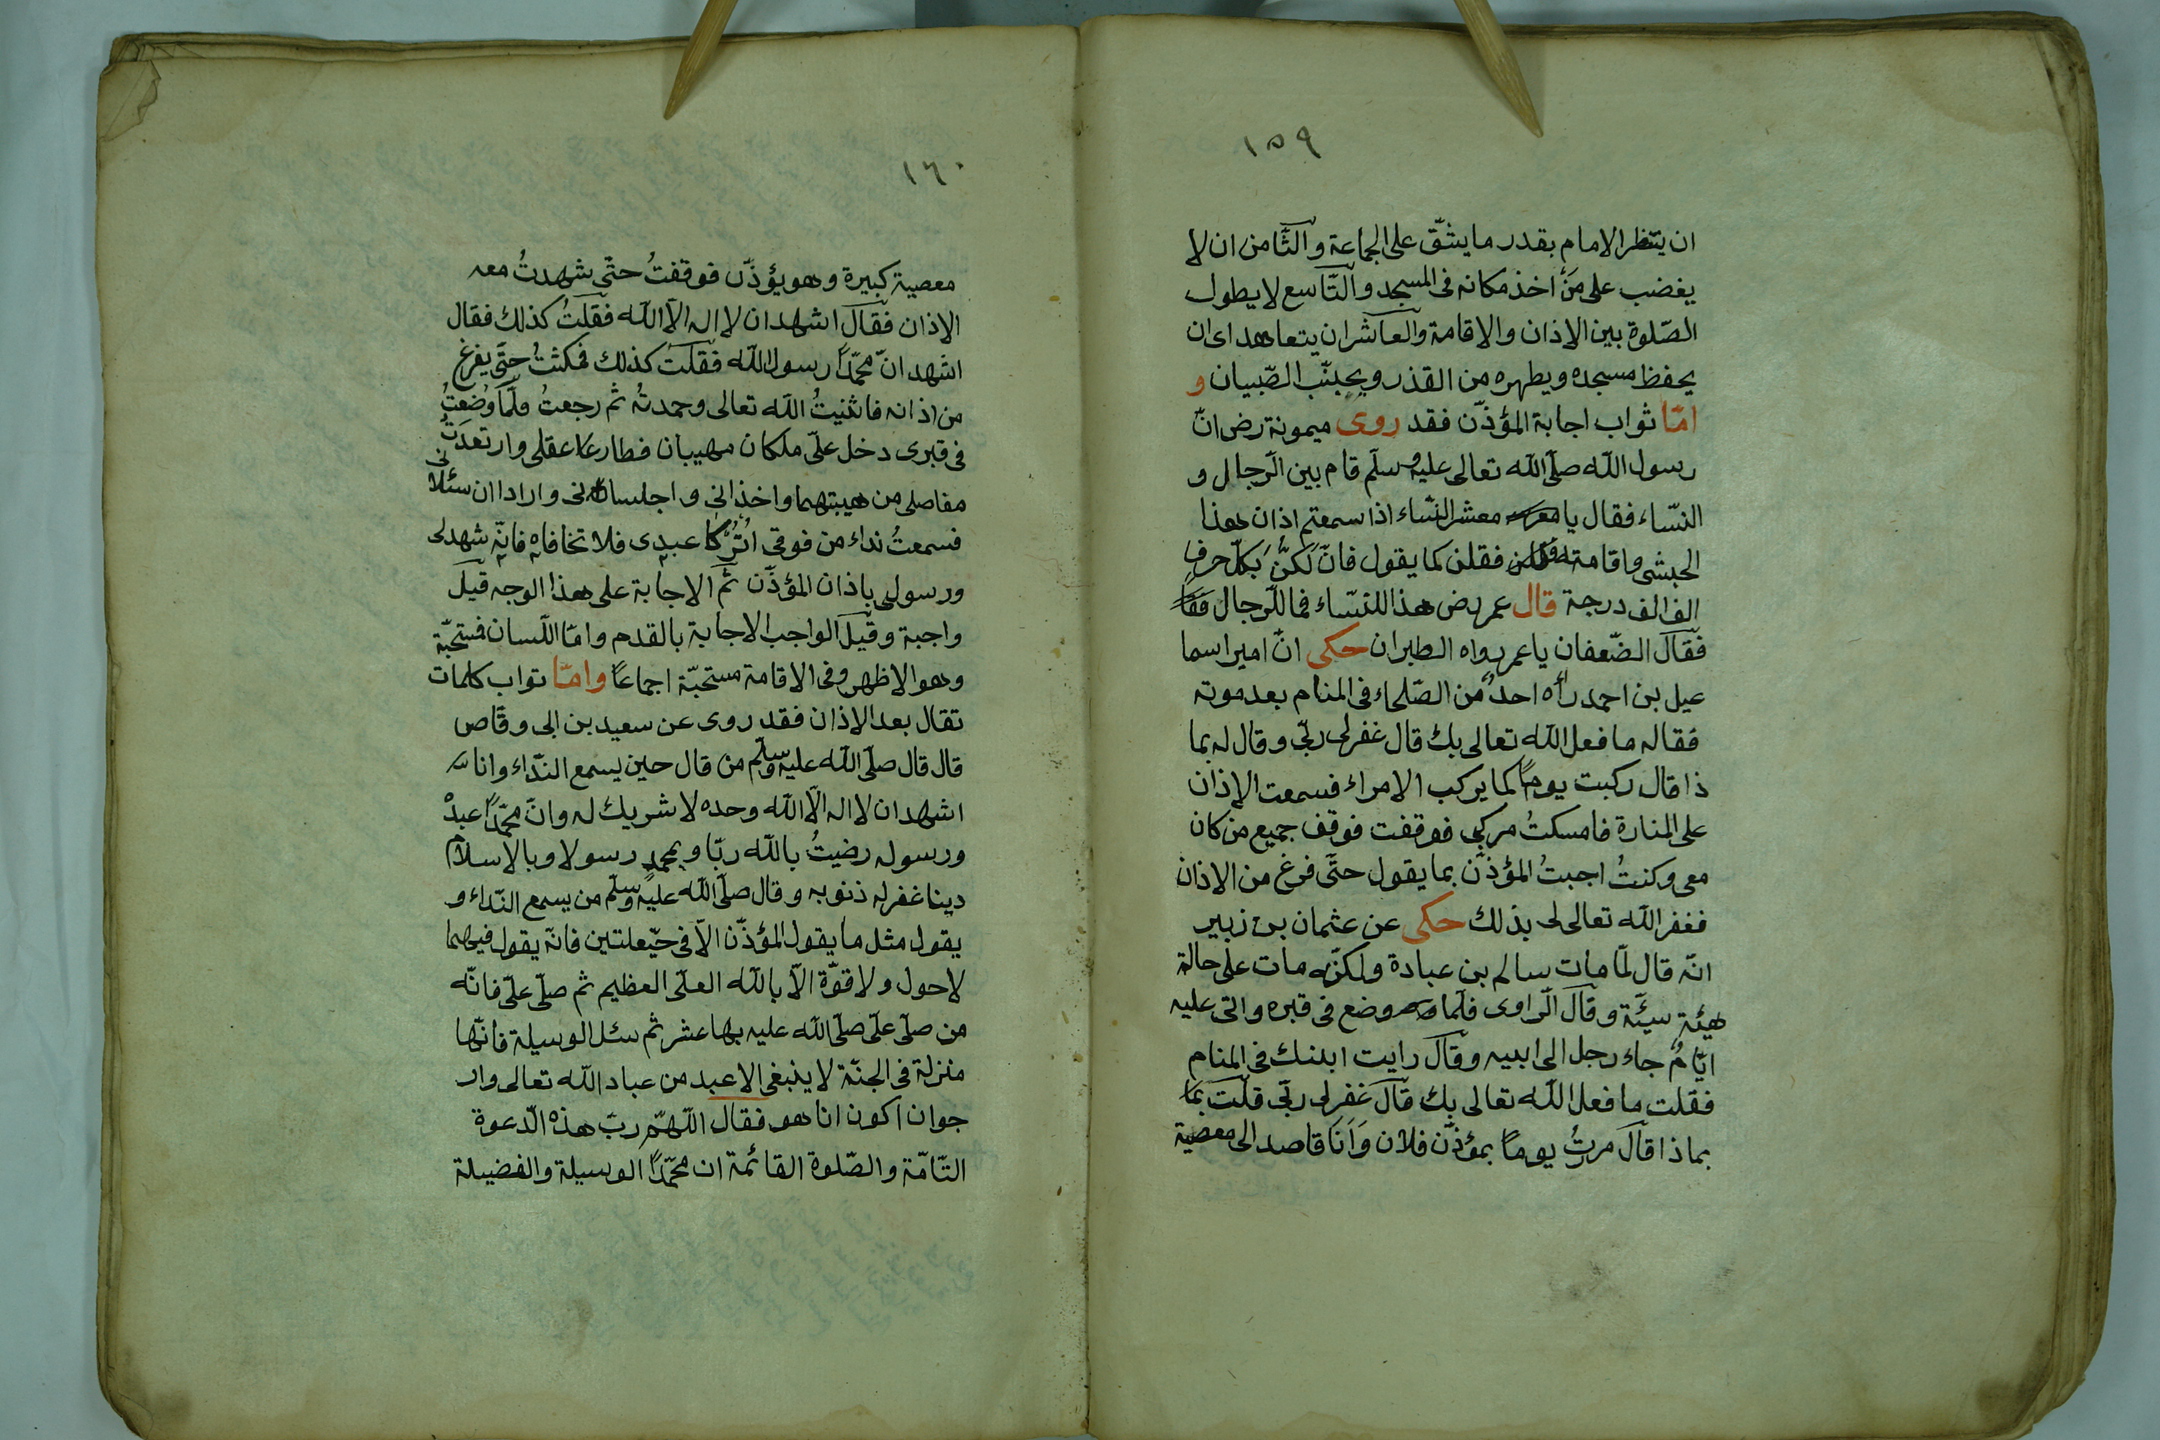 ١٥٩
ان ينتظر الامام بقدر ما يشقّ على الجماعة والثّامن ان لا
يغضب على مَنْ اخذ مكانه فى المسجد والتّاسع لا يطول
الصّلوة بين الاذان والاقامة والعاشر ان يتعاهد اى ان
يحفظ مسجده ويطهره من القذر ويجنّب الصّبيان و
امّا ثواب اجابة المؤذّن فقد روى ميمونة رض انّ
رسول الله صلّى الله تعالى عليه وسلّم قام بين الرّجال و
النسّاء فقال يا معشر النسّاء اذا سمعتم اذان هذا
الحبشى واقامته فقلن كما يقول فانّ لكنّ بكلّ حرفٍ
الف الف درجة قال عمر رض هذا للنسّاء فما للّرجال
فقال الضّعفان يا عمر رواه الطبران حكى انّ امير اسما
عيل بن احمد رأه احدٌ من الصّلحاء فى المنام بعد موته
فقاله ما فعل الله تعالى بك قال غفر لى ربّى وقال له بما
ذا قال ركبت يوماً كما يركب الامراء فسمعت الاذان
على المنارة فامسكتُ مركبى فوقفت فوقف جميع من كان
معى وكنتُ اجبتُ المؤذّن بما يقول حتّى فرغ من الاذان
فغفر الله تعالى لى بذلك حكى عن عثمان بن زبير
انّه قال لمّا مات سالم بن عبادة ولكنّه مات على حالة
هيئة سيّئة وقال الرّاوى فلمّا وضع فى قبره واتى عليه
ايّامٌ جاء رجل الى ابيه وقال رايت ابنك فى المنام
فقلت ما فعل الله تعالى بك قال غفر لى ربّى قلت
بماذا قال مرتُ يوماً بمؤذّن فلان وَاَنَا قاصد الى معصية
١٦٠
معصية كبيرة وهو يؤذّن فوقفتُ حتّى شهدتُ معه
الاذان فقال اشهد ان لا اله الّا الله فقلتُ كذلك فقال
اشهد انّ محمّداً رسول الله فقلت كذلك فمكثتُ حتّى يفرغ
من اذانه فاثنيتُ الله تعالى وحمدتُه ثم رجعتُ ولمّا وُضعتُ
فى قبرى دخل علىّ ملكان مهيبان فطار عقلى وارتعدَتْ
مفاصلى من هيبتهما واخذانى واجلسانى وارادا ان سئلا نى
فسمعتُ نداء من فوقى اُتْرُكا عبدى فلا تخافاه فانّه شهد لى
ورسولى باذان المؤذّن ثم الاجابة على هذا الوجه قيل
واجبة وقيل الواجب الاجابة بالقدم وامّا اللّسان فستحبّة
وهو الاظهر وفى الاقامة مستحبّة اجماعاً وامّا ثواب كلمات
تقال بعد الاذان فقد روى عن سعيد بن ابى وقّاص
قال قال صلّى الله عليه وسلّم من قال حين يسمع النّداء وانا
اشهد ان لا اله الّا الله وحده لا شريك له وانّ محمّداً عبدْ
ورسوله رضيتُ بالله ربّا وبمحمدٍ رسولا وبالاسلام
دينا غفر له ذنوبه وقال صلّى الله عليه وسلّم من يسمع النّداء و
يقول مثل ما يقول المؤذّن الّا فى حيّعلتين فانّه يقول فيهما
لا حول ولا قوّة الّا بالله العلّى العظيم ثم صلّى علىّ فانّه
من صلّى علىّ صلّى الله عليه بها عشر ثم سئل الوسيلة فانّها
منزلة فى الجنّة لا ينبغى الا عبد من عباد الله تعالى وار
جوان اكون انا هو فقال اللّهمّ ربّ هذه الدّعوة
التّامّة والصّلوة القائمة ان محمّداً الوسيلة والفضيلة